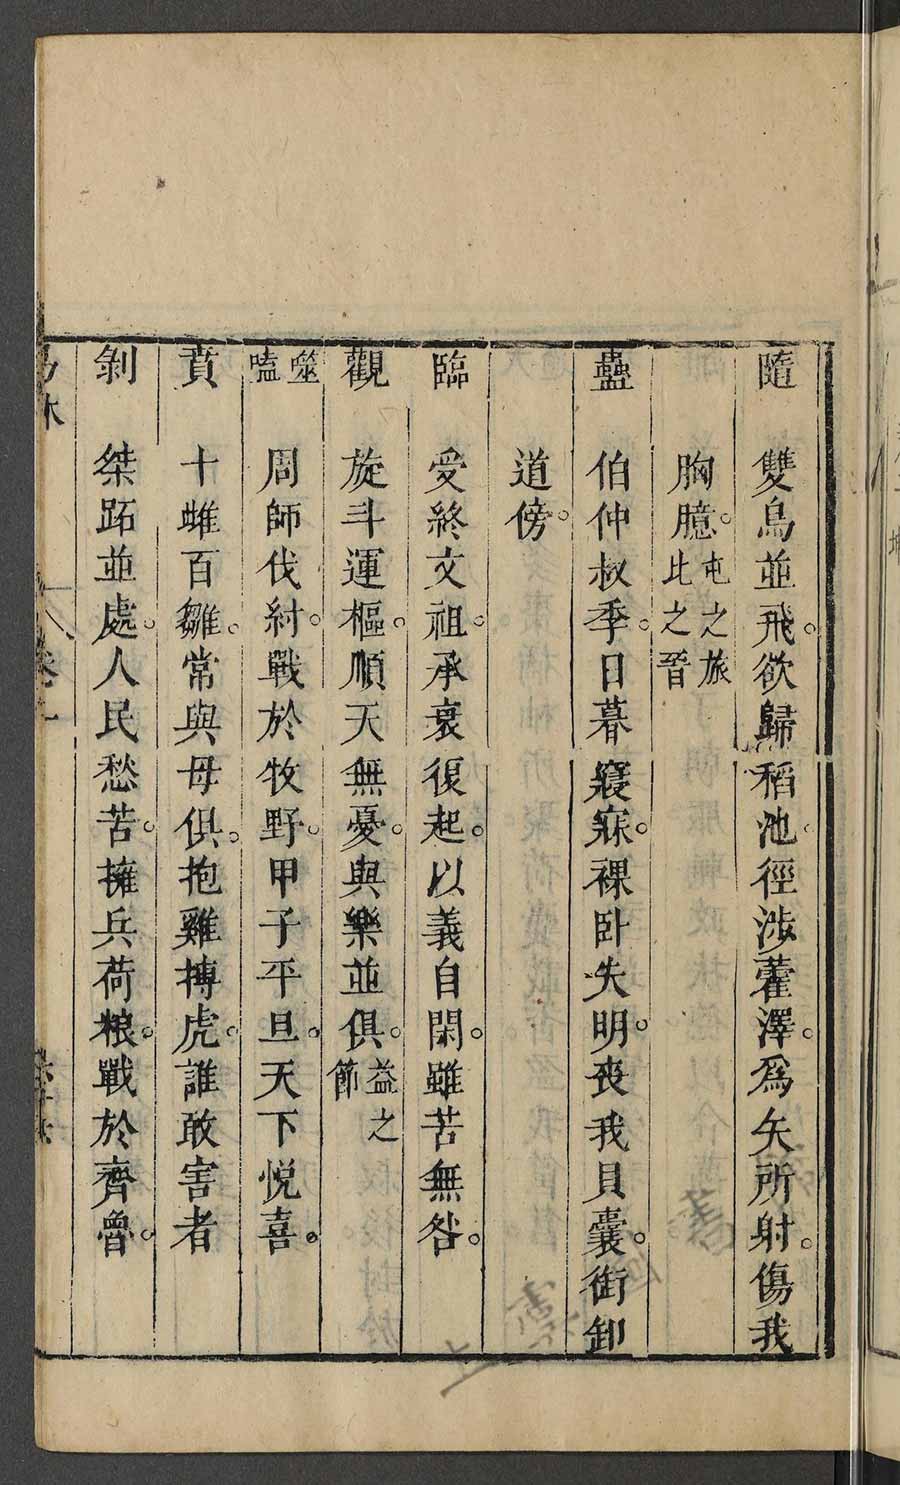 隨 雙鳥並飛。欲歸稻池。徑涉雚澤。爲矢所射。傷我
胸臆。屯之旅此之晉
蠱 伯仲叔季。日暮寢寐。裸臥失明。喪我貝囊。衘卸
道傍。
臨 受終文祖。承衰復起。以義自閑。雖苦無咎。
觀 旋斗運樞。順天無憂。與樂並俱。益之節
噬嗑 周師伐紂。戰於牧野。甲子平旦。天下悅喜。
賁 十雌百雛。常與母俱。抱雞搏虎。誰敢害者
剝 桀跖並處。人民愁苦。擁兵荷粮。戰於齊魯。
易林 卷一